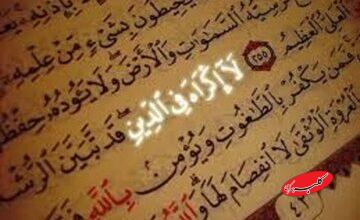 يُحِيطُونَ بِشَىْءٍ مِّنْ عِلْمِهِۦٓ
كُرْسِيُّهُ ٱلسَّمَٰوَٰتِ وَٱلْأَرْضَ وَلَا يَـُٔودُهُۥ حِفْظُهُمَا
ٱلْعَلِىُّ ٱلْعَظِيمُ ٢٥٥ لَآ إِكْرَاهَ فِى ٱلدِّينِ قَد تَّبَيَّنَ ٱلرُّشْدُ
فَمَن يَكْفُرْ بِٱلطَّٰغُوتِ وَيُؤْمِنۢ بِٱللَّهِ
ٱلْعُرْوَةِ ٱلْوُثْقَىٰ لَا ٱنفِصَامَ لَهَا وَٱللَّهُ
٤٢